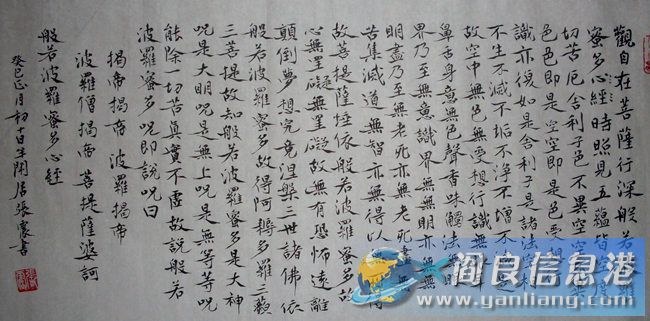 觀自在菩薩行深般若
蜜多心經時照見五蘊皆度
切苦厄舍利子色不異空空
色色即是空空即是色受想
識亦復如是舍利子是諸法空相
不生不滅不垢不淨不增不
故空中無色無受想行識無
鼻舌身意無色聲香味觸法無
界乃至無意識界無無明亦無無
明盡乃至無老死亦無老死盡
苦集滅道無智亦無得以無得
故菩提薩埵依般若波羅蜜多故
心無罣礙無罣礙故無有恐怖遠離
顛倒夢想究竟涅槃三世諸佛依
般若波羅蜜多故得阿耨多羅三藐
三菩提故知般若波羅蜜多是大神
咒是大明咒是無上咒是無等等咒
能除一切苦真實不虛故說般若
波羅蜜多咒即說咒曰
揭帝揭帝 波羅揭帝
波羅僧揭帝 菩提薩婆訶
般若波羅蜜多心經
癸巳正月初十日閒居張書
阎良信息港
www.yanliang.com